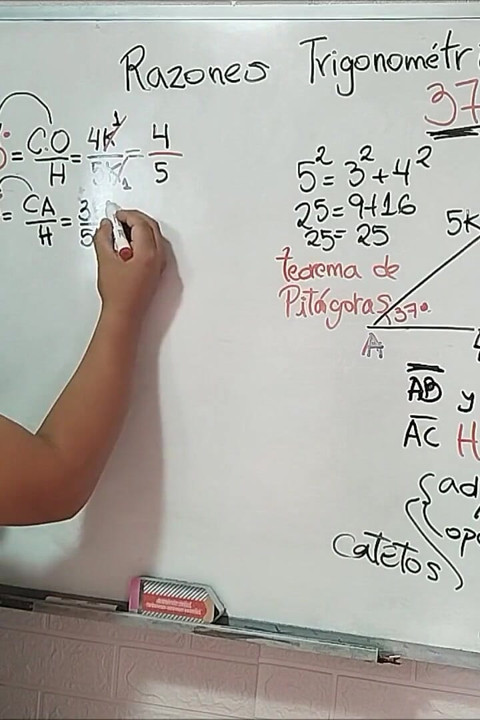 Razones Trigonométri
37
= C.O/H = 4K/5K = 4/5
= CA/H = 3/5
5² = 3² + 4²
25 = 9+16
25 = 25
teorema de
Pitágoras
5K
37°
A
4
AB y
AC H
Catetos